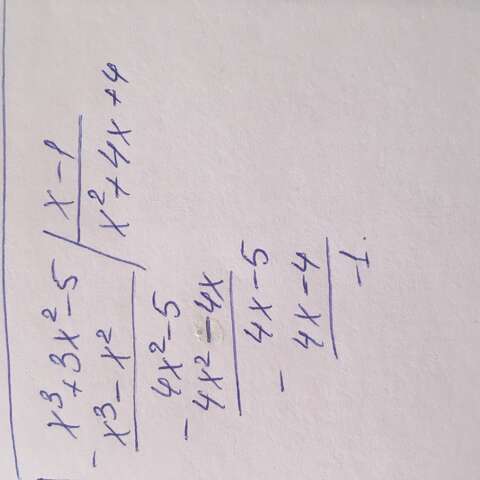 x³+3x²-5 | x-1
- x³-x² x²+4x+4
4x²-5
- 4x²-4x
4x-5
- 4x-4
-1.